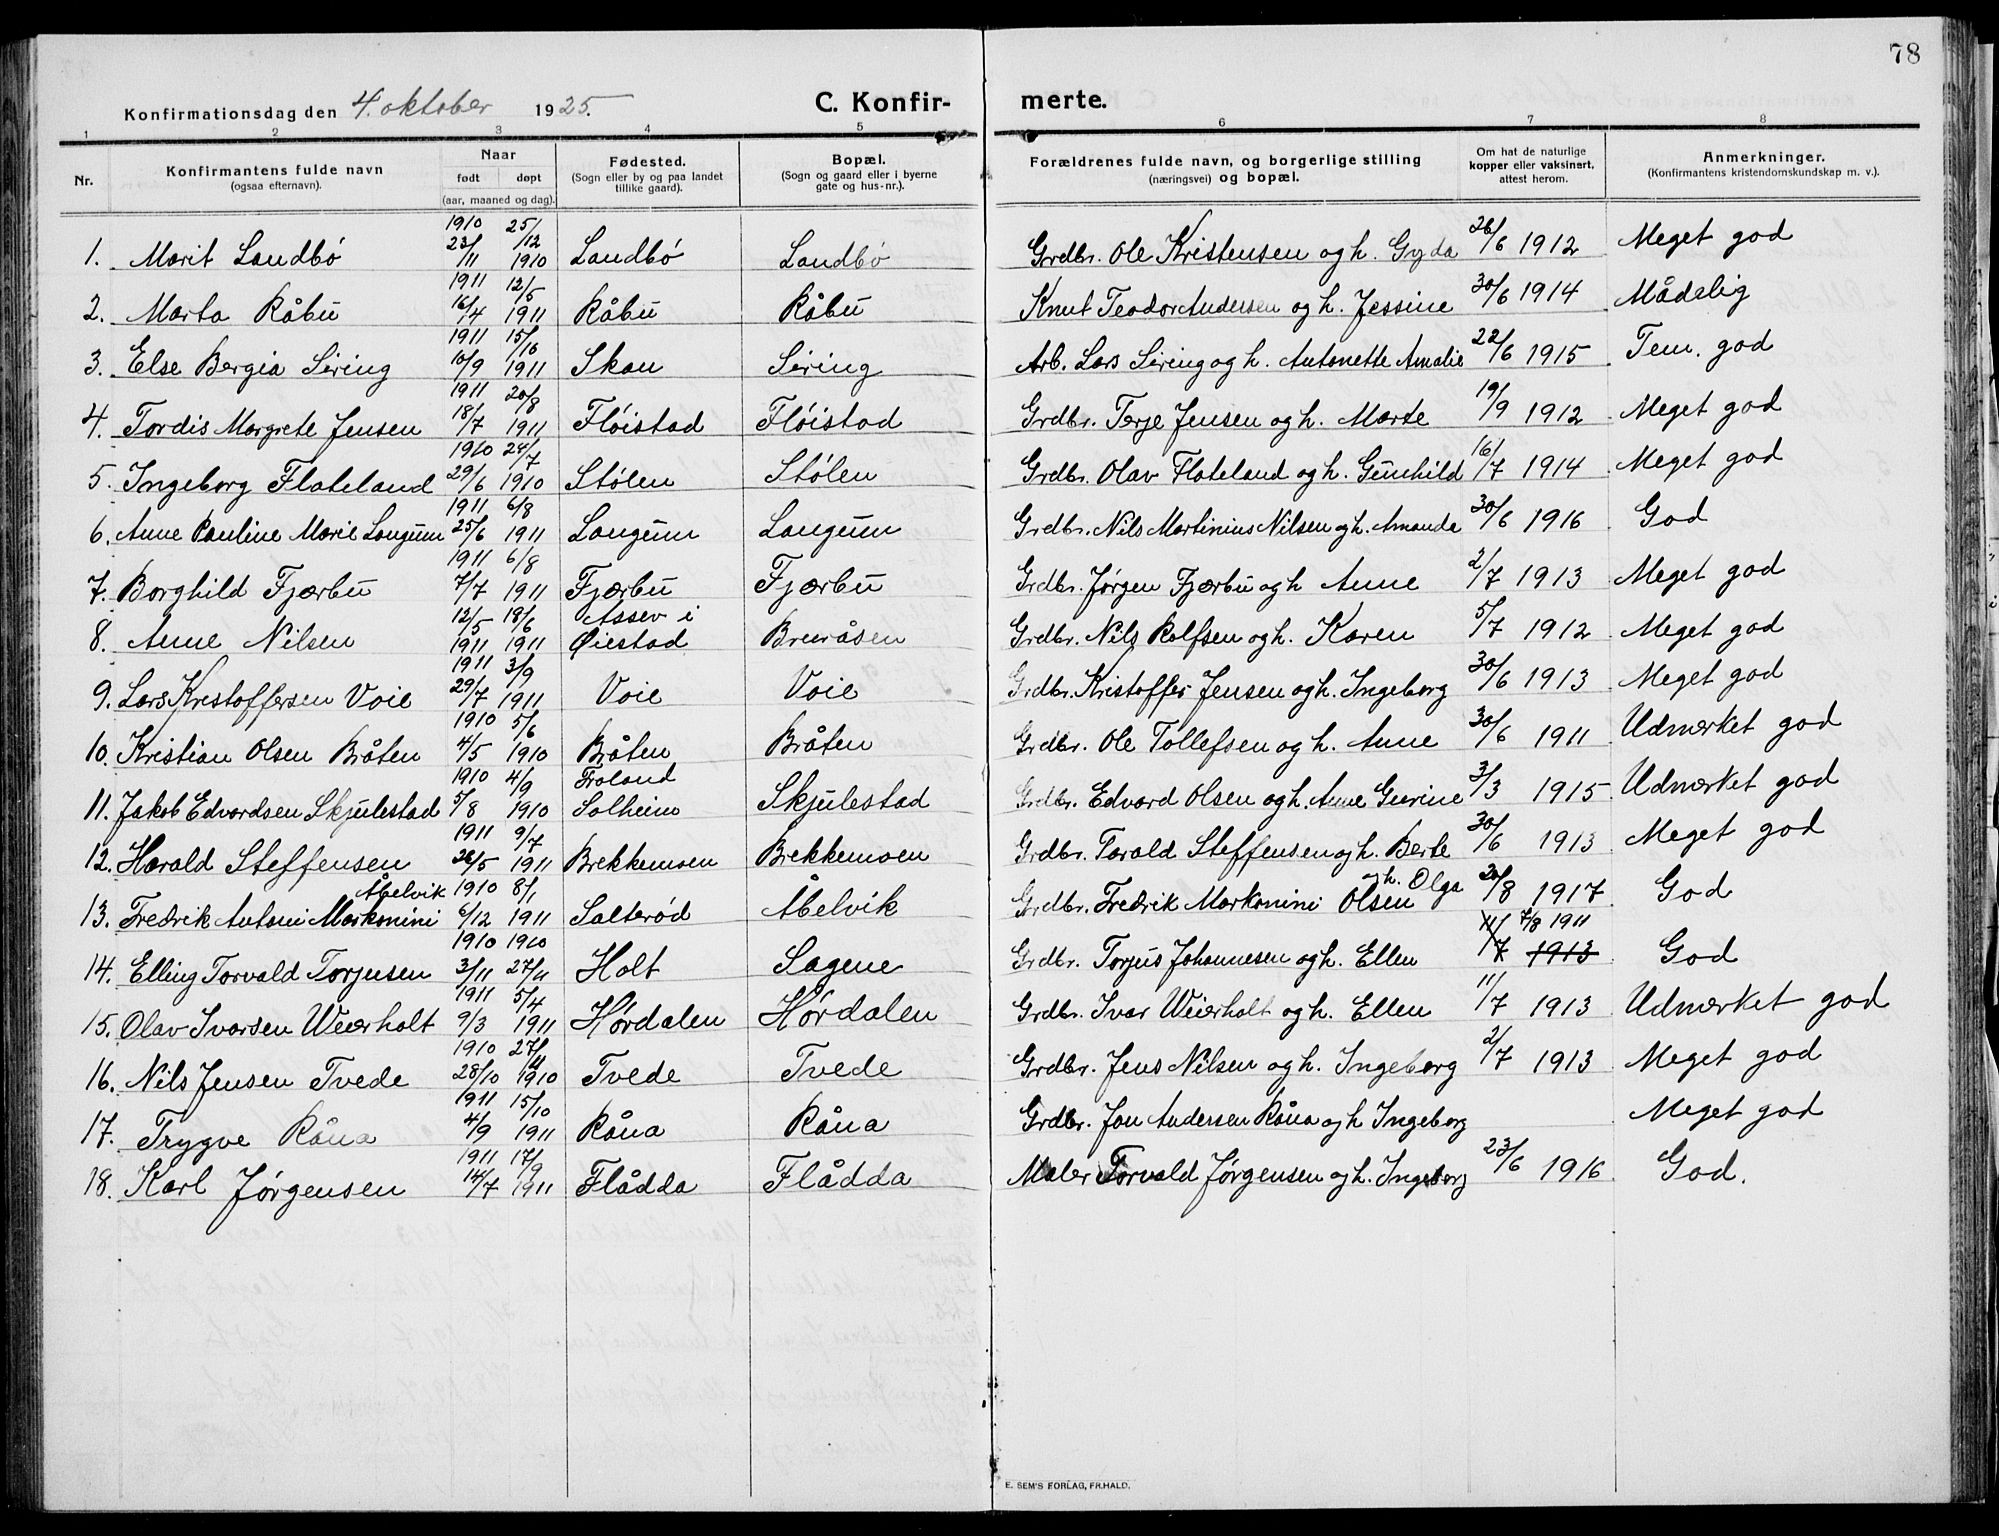 78
Konfirmationsdag den 4. oktober 1925.
C. Konfir- merte.
1 2 3 4 5 6 7 8
Nr.
Konfirmantens fulde navn
(ogsaa efternavn).
Naar
født døpt
(aar, maaned og dag).
Fødested.
(Sogn eller by og paa landet
tillike gaard).
Bopæl.
(Sogn og gaard eller i byerne
gate og hus-nr.).
Forældrenes fulde navn, og borgerlige stilling
(næringsvei) og bopæl.
Om hat de naturlige
kopper eller vaksinert,
attest herom.
Anmerkninger.
(Konfirmantens kristendomskundskap m. v.).
1910 25/
1. Marit Landbö 23/11 /12 1910 Landbö Landbö Grdbr. Ole Kristensen og h. Gyda 26/6 1912 Meget god
1911 12/5
2. Marta Råbu 16/4 1911 Råbu Råbu Knut Teodor Andersen og h. Jessine 30/6 1914 Mådelig
1911 15/10
3. Else Bergia Sering 10/9 1911 Skau Sering Arb. Lars Sering og h. Antonette Amalie 22/6 1915 Tem. god
1911 20/8
4. Tordis Margrete Jensen 18/7 1911 Flöistad Flöistad Grdbr. Terje Jensen og h. Marte 19/9 1912 Meget god
1910 24/7
5. Ingeborg Flateland 29/6 1910 Stölen Stölen Grdbr. Olav Flateland og h. Gunhild 16/7 1914 Meget god
1911 6/8
6. Anne Pauline Marie Langum 25/6 1911 Langum Langum Grdbr. Nils Martinius Nilsen og h. Amanda 30/6 1916 God
1911 6/8
7. Borghild Fjærbu 7/7 1911 Fjærbu Fjærbu Grdbr. Jørgen Fjærbu og h Anne 2/7 1913 Meget god
12/5 18/6 Assev i
8. Anne Nilsen 1911 1911 Øiestad Bruråsen Grdbr. Nils Rolfsen og h. Karen 5/7 1912 Meget god
1911 3/9
9. Lars Kristoffersen Voie 29/7 1911 Voie Voie Grdbr. Kristoffer Jensen og h. Ingeborg 30/6 1913 Meget god
1910 5/6
10. Kristian Olsen Bråten 4/5 1910 Bråten Bråten Grdbr. Ole Tollefsen og h. Anne 30/6 1911 Udmerket god
1910 4/9 Froland
11. Jakob Edvardsen Skjulestad 5/8 1910 Solheim Skjulestad Grdbr. Edvard Olsen og h. Anne Gurine 3/3 1915 Udmerket god
1911 9/7
12. Harald Steffensen 26/5 1911 Brekkemoen Brekkemoen Grdbr. Tarald Steffensen og h. Berte 30/6 1913 Meget god
Åbelvik 1910 8/1 og h. Olga
13. Fredrik Antoni Markonini 6/12 1911 Salteröd Åbelvik Grdbr. Fredrik Markonini Olsen 20/8 1917 God
1910 1910 7/8 1911
14. Elling Torvald Torjusen 3/11 27/11 Holt Sagene Grdbr. Torjus Johannesen og h. Ellen 11/7 1913 God
1911 5/4
15. Olav Ivarsen Weierholt 9/3 1911 Hørdalen Hørdalen Grdbr. Ivar Weierholt og h. Ellen 11/7 1913 Udmerket god
1910 27/11
16. Nils Jensen Tvede 28/10 1910 Tvede Tvede Grdbr. Jens Nilsen og h. Ingeborg 2/7 1913 Meget god
1911 15/10
17. Trygve Råna 4/9 1911 Råna Råna Grdbr. Jon Andersen Råna og h Ingeborg Meget god
1911 17/9
18. Karl Jørgensen 14/7 1911 Flådda Flådda Maler Torvald Jørgensen og h. Ingeborg 23/6 1916 God.
E. SEM'S FORLAG, FR.HALD.